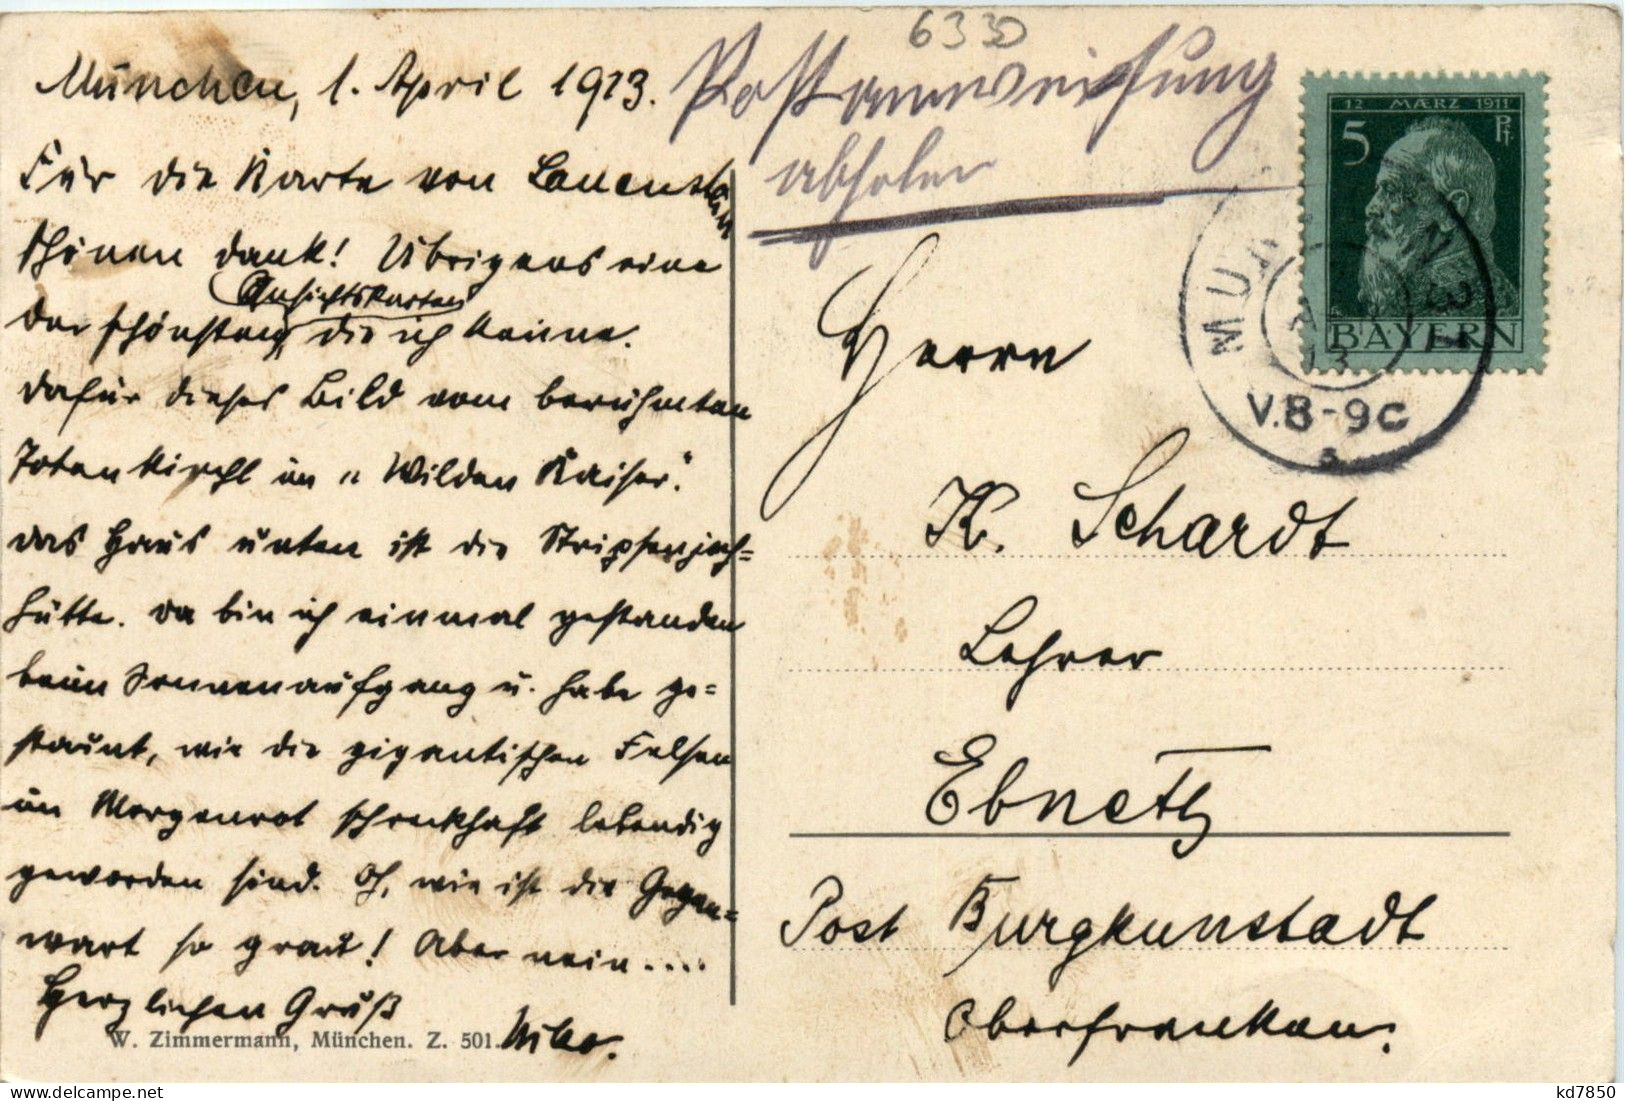 München, 1. April 1913.
Für die Karte von Lauenstein
schönen Dank! Übrigens eine
der schönsten Ansichtskarten, die ich kenne.
Dafür dieses Bild vom berühmten
Totenkirchl im "Wilden Kaiser".
Das Haus unten ist die Stripsenjoch=
hütte. Da bin ich einmal gestanden
beim Sonnenaufgang u. habe ge=
staunt, wie die gigantischen Felsen
im Morgenrot schreckhaft lebendig
geworden sind. Oh, wie ist die Gegen=
wart so grau! Aber nein....
Herzlichen Gruß
W. Zimmermann, München. Z. 501.
6330
Postanweisung
abholen
12 MÆRZ 1911
5 Pf.
BAYERN
V.8-9
Herrn
K. Schardt
Lehrer
Ebneth
Post Burgkunstadt
Oberfranken.
kd7850